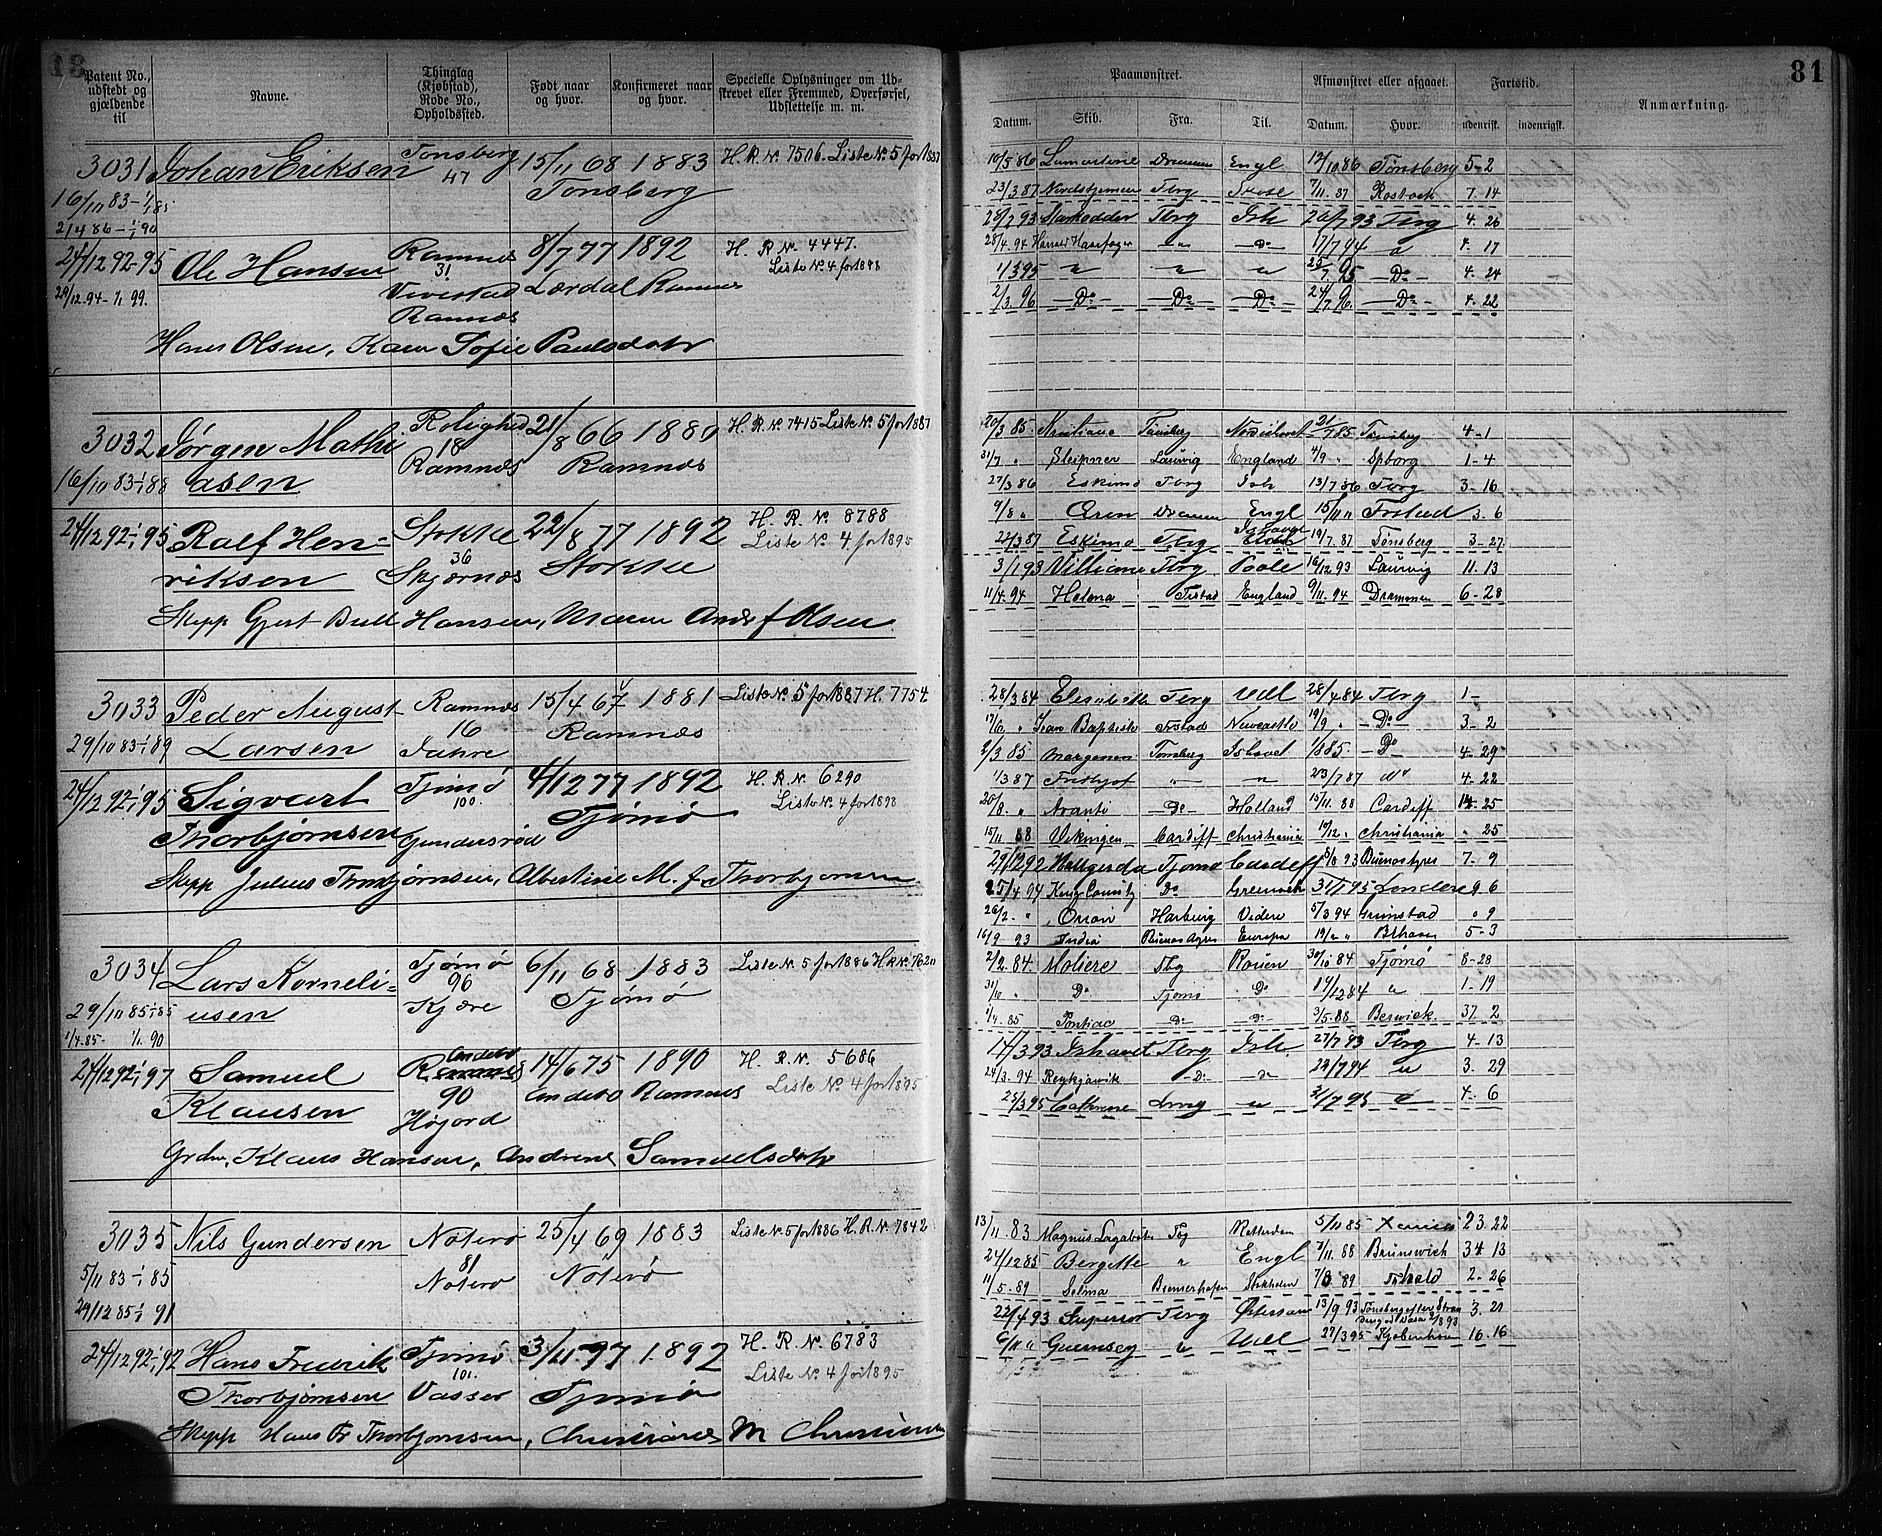 81
Patent No., udstedt og gjældende til
Navne.
Thinglag (Kjøbstad), Rode No., Opholdssted.
Født naar og hvor.
Konfirmeret naar og hvor.
Specielle Oplysninger om Udskrevet eller Fremmed, Overførsel, Udslettelse m. m.
3031 Johan Eriksen Tønsberg 15/11 68 1883 H. R. No. 7506. Liste No. 5 for 1887
47 Tønsberg
16/10 83-1/1 85
21/4 86-1/1 90
24/12 92-95 Ole Hansen Ramnes 8/7 77 1892 H. R. No. 4447.
31 Liste No. 4 for 1898
29/12 94-1/1 99. Vivestad Lardal Ramnes
Ramnæs
Hans Olsen, Karen Sofie Paulsdatr
3032 Jørgen Mathi Rolighed 21/8 66 1880 H. R. No. 7415 Liste No. 5 for 1887
18
16/10 83-1/1 88 asen Ramnæs Ramnæs
24/12 92-1/1 95 Ralf Hen- Stokke 22/8 77 1892 H. R. No. 8788
36 Liste No. 4 for 1895
riksen Skjærnæs Stokke
Skipp Gjert Bull Hansen, Maren Andr f Olsen
3033 Peder August Ramnæs 15/4 67 1881 Liste No. 5 for 1887 H. 7754.
16
29/10 83-1/1 89 Larsen Jahre Ramnæs
24/12 92-1/1 95 Sigvart Tjømø 4/12 77 1892 H. R. No. 6290
100. Liste No. 4 for 1898
Thorbjørnsen Gundersrød Tjømø
Skipp Julius Thorbjørnsen, Albertine M. f. Thorbjørnsen
3034 Lars Korneli- Tjømø 6/11 68 1883 Liste No. 5 for 1886 H. R. No. 7620
96
29/10 85-1/1 85 usen Kjære Tjømø
1/4 85- 1/1 90
24/12 92-1/1 97 Samuel Andebo 14/6 75 1890 H. R. No. 5686
90 Andebo Ramnes Liste No. 4 for 1895
Klausen Højord
Grdm. Klaus Hansen, Andrine Samuelsdatr
3035 Nils Gundersen Nøterø 25/4 69 1883 Liste No. 5 for 1886 H. R. No. 7842
81
5/11 83-1/1 85 Nøterø Nøterø
29/12 85-1/1 91
24/12 92-1/1 97 Hans Fredrik Tjømø 3/11 77 1892 H. R. No. 6783
101. Liste No. 4 for 1895
Thorbjørnsen Vasser Tjømø
Skipp Hans Fr Thorbjørnsen, M
Paamønstret. Afmønstret eller afgaaet. Fartstid. Anmærkning.
Datum. Skib. Fra. Til. Datum. Hvor. udenrigst. indenrigst.
10/5 86 Lamartine Drammen Engl 12/10 86 Tønsberg 5-2
23/3 87 Tbrg 7/11 87 Rostock 7. 14
28/2 93 Starkodder Tbrg Ish 26/7 93 Tbrg 4. 26
28/4 94 Harald Haarfager " Do 17/7 94 " 4. 17
1/3 95 " " " 25/7 95 Do 4. 24
2/3 96 Do Do Do 24/7 96 Do 4. 22
20/3 85 Kristiane Tønsberg Nordishavet 21/7 85 Tønsberg 4-1
31/7 " Sleipner Laurvig England 4/9 " Spborg 1-4
27/3 86 Eskimo Tbrg Ish 13/7 86 Tbrg 3-16
9/8 " Ørnen Drammen Engl 15/11 " Frstad 3-6
22/3 87 Eskimo Tbrg Ishavet 19/7 87 Tønsberg 3-27
3/1 93 Villiame Tbrg Poole 16/12 93 Laurvig 11. 13
11/4 94 Helena Frstad England 9/11 94 Drammen 6-28
28/3 84 Elisabeth Tbrg Udl 28/4 84 Tbrg 1-
17/6 " Jean Baptiste Frstad Newcastle 19/9 " Do 3-2
2/3 85 Morgenen Tønsberg Ishavet 1/8 85 Do 4-29
1/3 87 Fridtjof " " 23/7 87 4-22
20/8 " Avanti Do Holland 15/11 88 Cardiff 14-25
15/11 88 Vikingen Cardiff Christiania 10/12 " Christiania " 25
29/12 92 Hallgerda Tjømø Cardiff 5/8 93 Buenos Ayres 7-9
25/4 94 Do Greenock 31/1 95 Londen 9 6
26/2 " Orion Harburg 5/3 94 Grimstad " 9
16/9 93 India Buenos Ayres Europa 19/2 " 5-3
2/2 84 Moliere Tbg Rouen 30/10 84 Tjømø 8-28
31/10 " Do Tjømø Do 19/12 84 " 1-19
1/4 85 Pontiac Do Do 3/5 88 Berwick 37. 2
17/3 93 Ishavet Tbrg Ish 27/7 93 Tbrg 4-13
24/3 94 Reykjavik Do Do 29/7 94 " 3. 29
25/3 95 Cathrine " 31/7 95 " 4. 6
13/11 83 Magnus Lagabøte Tbg Rotterdam 5/11 85 23. 22
24/12 85 Bergitte " Engl 7/11 88 Brunswich 34 13
11/5 89 Selma Bremerhafen Stokholm 7/8 89 2-26
22/4 93 Superior Tbrg Østersøen 13/9 93 Tønsberg efter Stran 3. 21
6/11 " Guernsey " Udl 27/3 95 Kjøbenhavn 16. 16